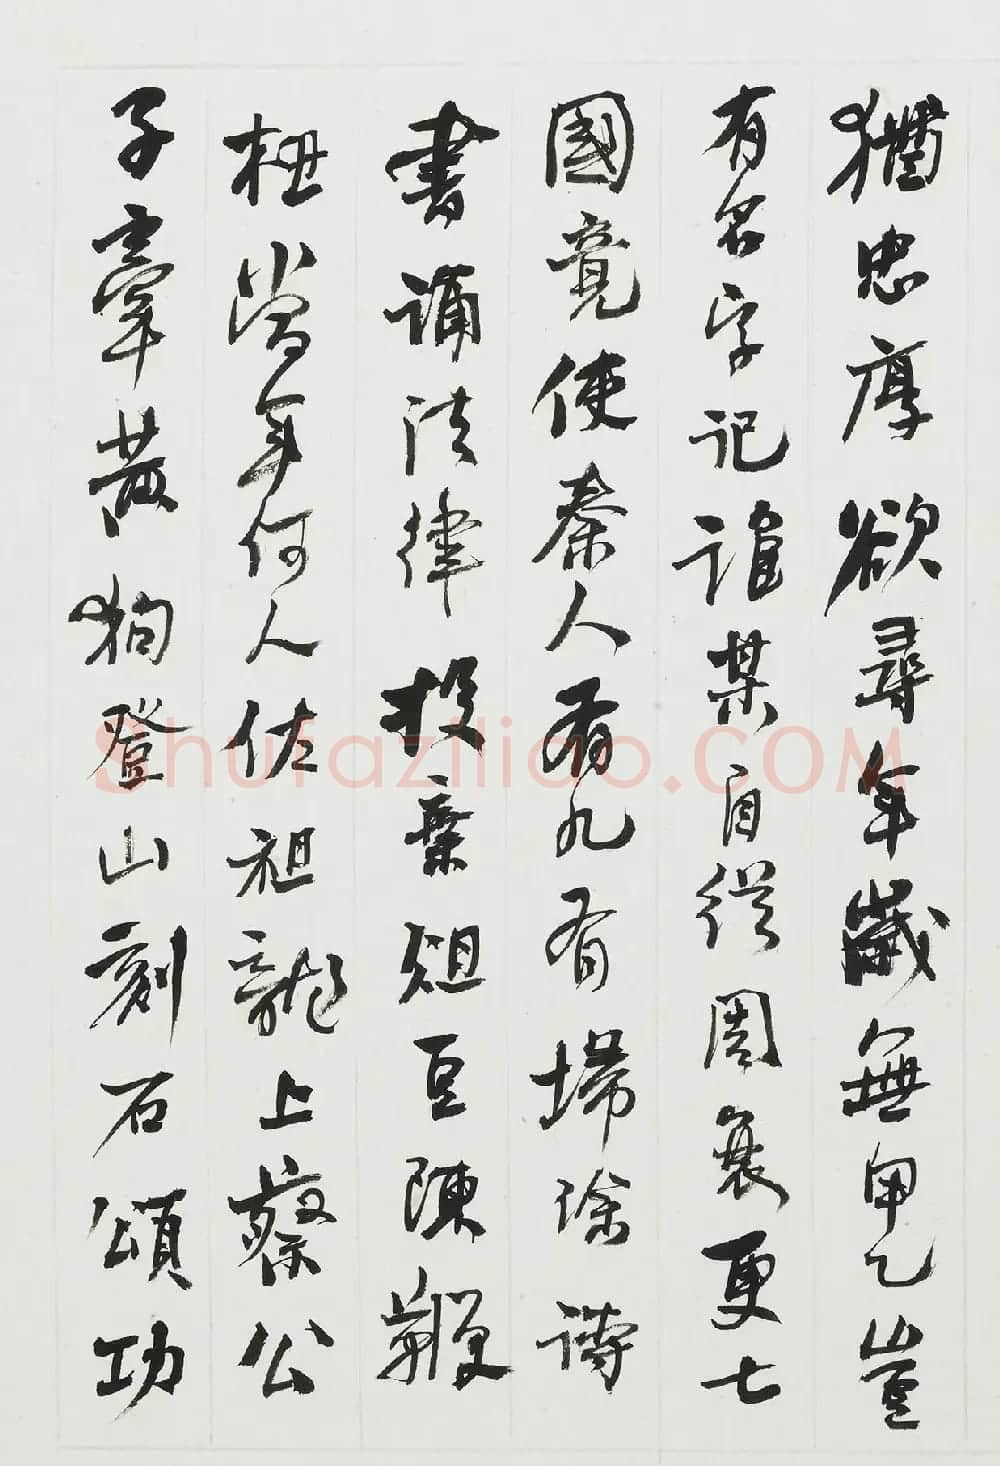 猶忠厚欲尋年歲無甲乙豈
有名字記誰某自從周衰更七
國竟使秦人有九有埽除詩
書誦法律投棄俎豆陳鞭
杻當年何人佐祖龍上蔡公
子牽黃狗登山刻石頌功
Shufaziliao.COM